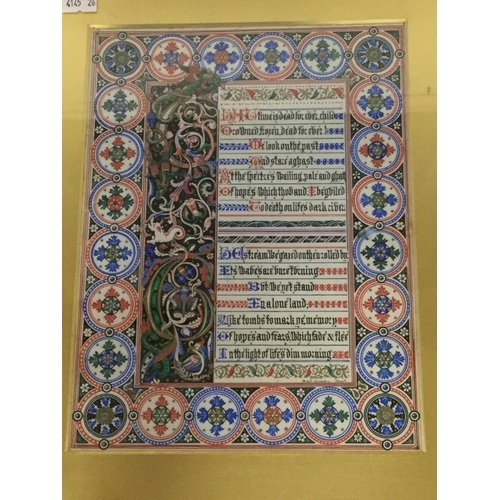 4145 26
THAT time is dead for ever, child
Drowned, frozen, dead for ever!
We look on the past
And stare aghast
At the spectres wailing, pale and ghast
Of hopes which thou and I beguiled
To death on life's dark river.
THE stream we gazed on then rolled by
Its waves are unreturning
But we yet stand
In a lone land
Like tombs to mark ye memory
Of hopes and fears, which fade & flee
In the light of life's dim morning